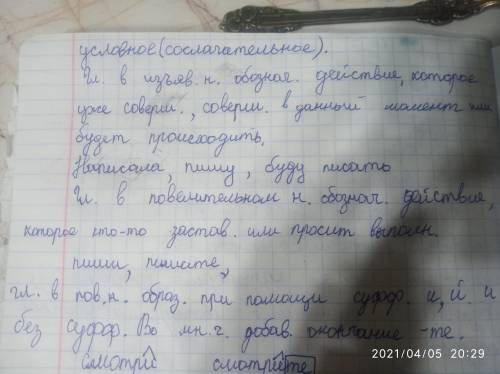 условное (сослагательное).
Гл. в изъяв. н. обознач. действие, которое
уже соверш., соверш. в данный момент или
будет происходить.
Написала, пишу, буду писать
Гл. в повелительном н. обознач. действие,
которое кто-то застав. или просит выполн.
пиши, пишите,
гл. в пов. н. образ. при помощи суфф. и, й и
без суфф. Во мн. ч. добав. окончание -те.
смотри смотрите
2021/04/05 20:29